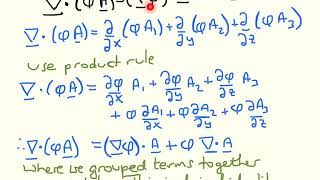 ∇·(φA) = (∇
∇·(φA) = ∂/∂x (φA₁) + ∂/∂y (φA₂) + ∂/∂z (φA₃)
use product rule
∇·(φA) = ∂φ/∂x A₁ + ∂φ/∂y A₂ + ∂φ/∂z A₃
+ φ ∂A₁/∂x + φ ∂A₂/∂y + φ ∂A₃/∂z
∴ ∇·(φA) = (∇φ)·A + φ ∇·A
where we grouped terms together